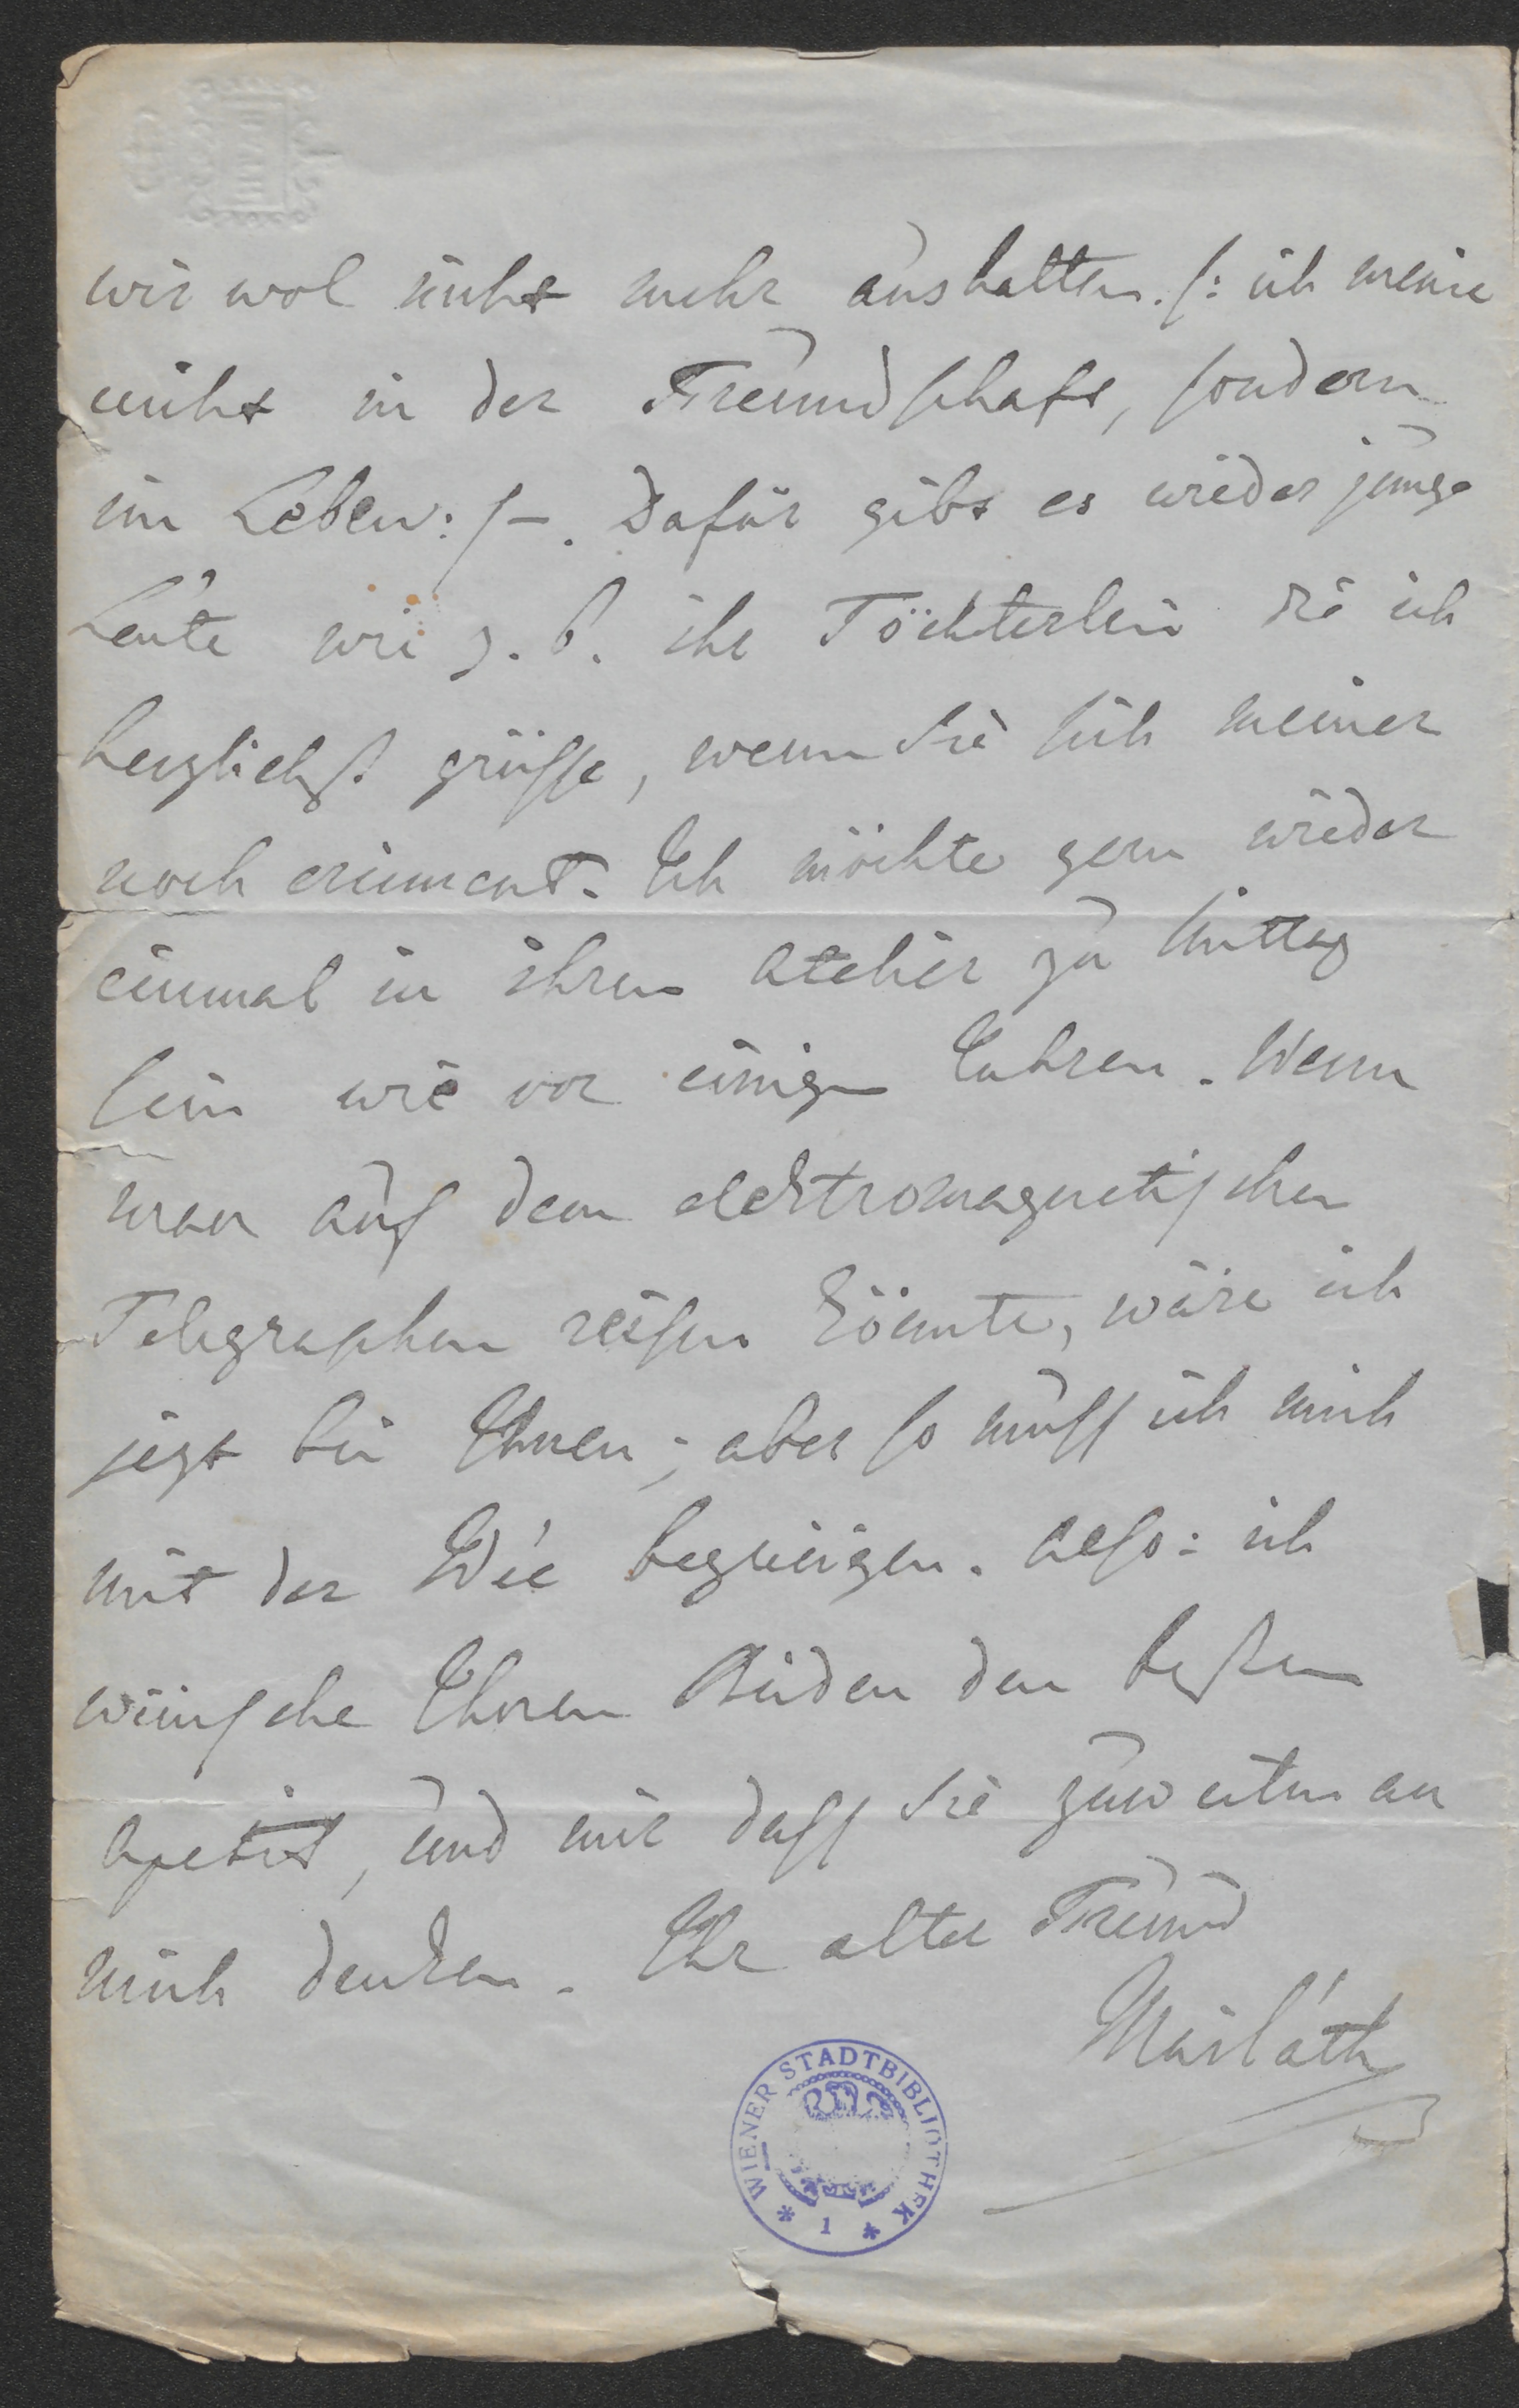 wir wol nicht mehr aushalten. /: ich meine
nicht in der Freundschaft, sondern
im Leben: /–. Dafür gibt es wieder junge
Leute wie z. b. ihr Töchterlein die ich
herzlichst grüsse, wenn Sie sich meiner
noch erinnert. Ich möchte gern wieder
einmal in ihrem Atelier zu Mittag
sein wie vor einigen Jahren. Wenn
man auf dem elektromagnetischen
Telegraphen reisen könnte, wäre ich
jezt bei Ihnen; aber so muss ich mich
mit der Idée begnügen. Also: ich
wünsche Ihnen Beiden den besten
Apetit, und mir dass Sie zuweilen an
mich denken. Ihr alter Freund
Mailáth
WIENER STADTBIBLIOTHEK
* 1 *